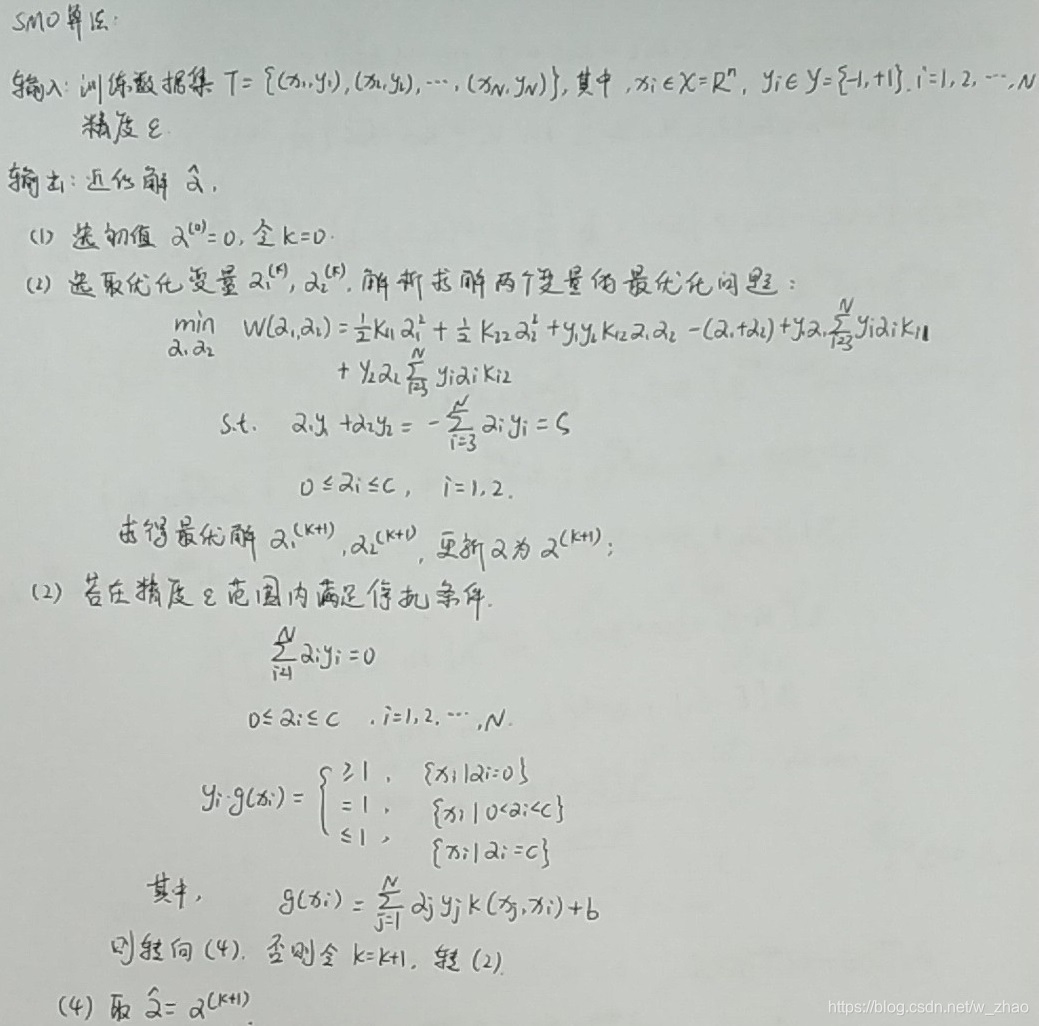 SMO算法:
输入: 训练数据集 T = {(x₁,y₁),(x₂,y₂),⋯,(x_N,y_N)}, 其中, xᵢ∈X=Rⁿ, yᵢ∈Y={-1,+1}, i=1,2,⋯,N
精度 ε.
输出: 近似解 α̂.
(1) 选初值 α^(0)=0, 令 k=0.
(2) 选取优化变量 α₁^(k), α₂^(k), 解析求解两个变量的最优化问题:
min_{α₁,α₂} W(α₁,α₂) = ½K₁₁α₁² + ½K₂₂α₂² + y₁y₂K₁₂α₁α₂ - (α₁+α₂) + y₁α₁ ∑_{i=3}^{N} yᵢαᵢKᵢ₁
+ y₂α₂ ∑_{i=3}^{N} yᵢαᵢKᵢ₂
s.t. α₁y₁ + α₂y₂ = -∑_{i=3}^{N} αᵢyᵢ = ς
0 ≤ αᵢ ≤ C, i=1,2.
求得最优解 α₁^(k+1), α₂^(k+1), 更新α为 α^(k+1);
(2) 若在精度 ε 范围内满足停机条件.
∑_{i=1}^{N} αᵢyᵢ = 0
0 ≤ αᵢ ≤ C, i=1,2,⋯,N.
yᵢ·g(xᵢ) = { ≥1, {xᵢ|αᵢ=0}
=1, {xᵢ|0<αᵢ<C}
≤1, {xᵢ|αᵢ=C}
其中, g(xᵢ) = ∑_{j=1}^{N} αⱼyⱼK(xⱼ,xᵢ)+b
则转向(4). 否则令 k=k+1, 转(2).
(4) 取 α̂ = α^(k+1).
https://blog.csdn.net/w_zhao